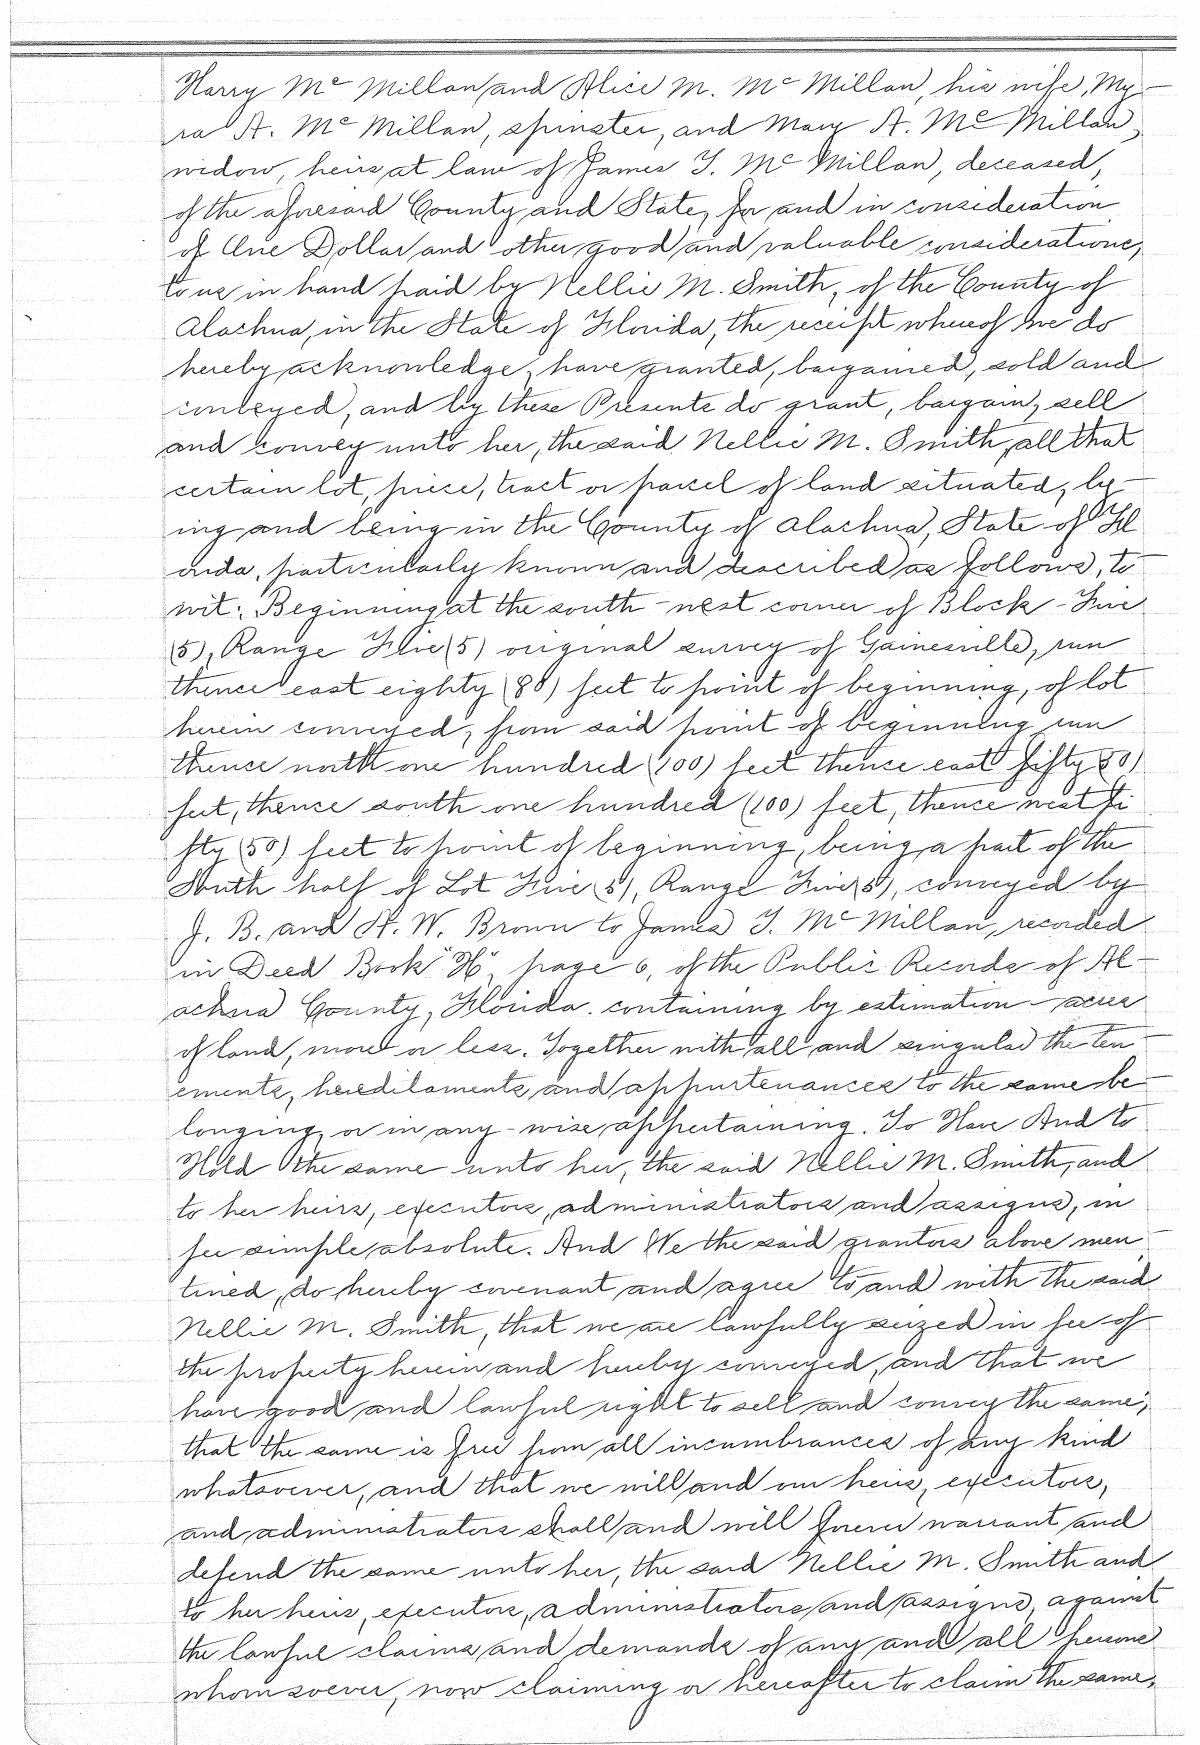 Harry Mc Millan and Alice M. Mc Millan, his wife, My-
ra A. Mc Millan, spinster, and Mary A. Mc Millan,
widow, heirs at law of James T. Mc Millan, deceased,
of the aforesaid County and State, for and in consideration
of One Dollar and other good and valuable considerations,
to us in hand paid by Nellie M. Smith, of the County of
Alachua, in the State of Florida, the receipt whereof we do
hereby acknowledge, have granted, bargained, sold and
conveyed, and by these Presents do grant, bargain, sell
and convey unto her, the said Nellie M. Smith, all that
certain lot, piece, tract or parcel of land situated, ly-
ing and being in the County of Alachua, State of Fl
orida, particularly known and described as follows, to
wit: Beginning at the south-west corner of Block-Five
(5), Range Five (5) original survey of Gainesville, run
thence east eighty (80) feet to point of beginning, of lot
herein conveyed, from said point of beginning run
thence north one hundred (100) feet thence east fifty (50)
feet, thence south one hundred (100) feet, thence west fi
fty (50) feet to point of beginning, being a part of the
South half of Lot Five (5), Range Five (5), conveyed by
J. B. and H. W. Brown to James T. Mc Millan, recorded
in Deed Book "H", page 6, of the Public Records of Al-
achua County, Florida. containing by estimation - acres
of land, more or less. Together with all and singular the ten-
ements, hereditaments, and appurtenances to the same be-
longing, or in any-wise appertaining. To Have And to
Hold the same unto her, the said Nellie M. Smith, and
to her heirs, executors, administrators and assigns, in
fee simple absolute. And We the said grantors above men-
tined, do hereby covenant and agree to and with the said
Nellie M. Smith, that we are lawfully seized in fee of
the property herein and hereby conveyed, and that we
have good and lawful right to sell and convey the same;
that the same is free from all incumbrances of any kind
whatsoever, and that we will and our heirs, executors,
and administrators shall and will forever warrant and
defend the same unto her, the said Nellie M. Smith and
to her heirs, executors, administrators and assigns, against
the lawful claims and demands of any and all persons
whomsoever, now claiming or hereafter to claim the same.